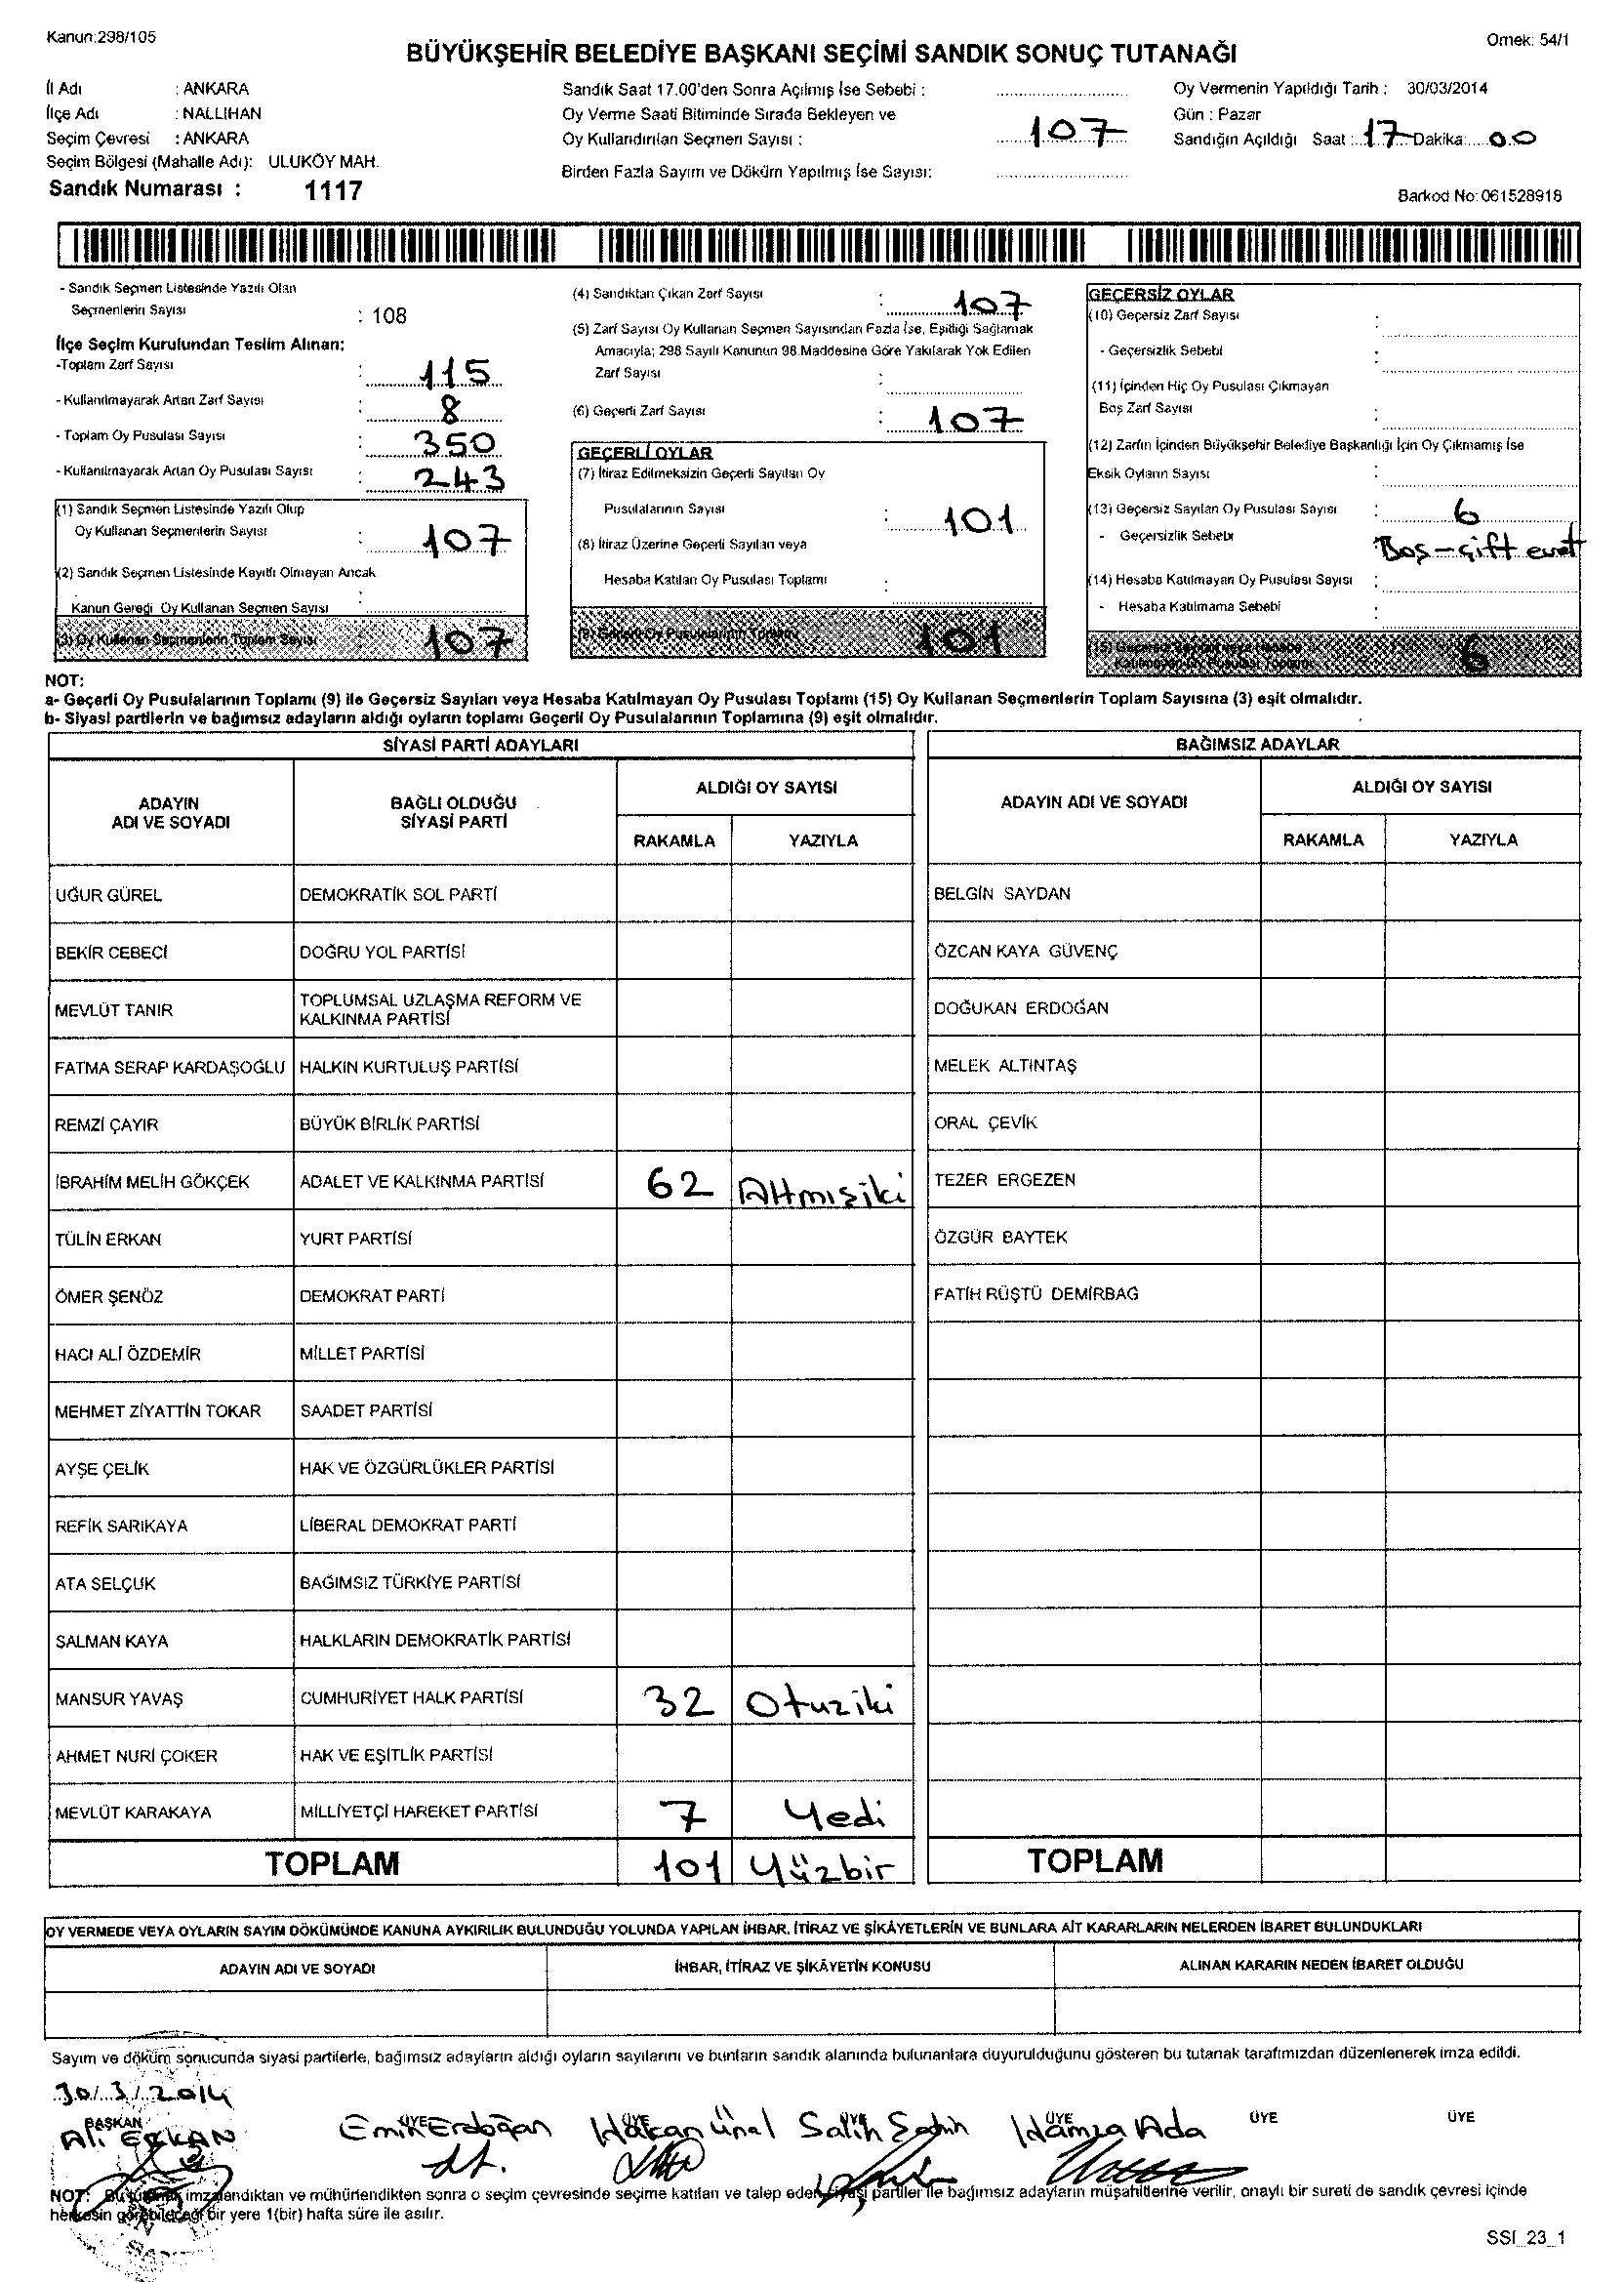 Kanun:298/105
Örnek: 54/1
BÜYÜKŞEHİR BELEDİYE BAŞKANI SEÇİMİ SANDIK SONUÇ TUTANAĞI
İl Adı : ANKARA
İlçe Adı : NALLIHAN
Seçim Çevresi : ANKARA
Seçim Bölgesi (Mahalle Adı): ULUKÖY MAH.
Sandık Numarası : 1117
Sandık Saat 17.00'den Sonra Açılmış İse Sebebi :
Oy Verme Saati Bitiminde Sırada Bekleyen ve
Oy Kullandırılan Seçmen Sayısı : 107
Birden Fazla Sayım ve Döküm Yapılmış İse Sayısı:
Oy Vermenin Yapıldığı Tarih : 30/03/2014
Gün : Pazar
Sandığın Açıldığı Saat : 17 Dakika: 00
Barkod No: 061528918
- Sandık Seçmen Listesinde Yazılı Olan
Seçmenlerin Sayısı : 108
İlçe Seçim Kurulundan Teslim Alınan;
-Toplam Zarf Sayısı : 115
- Kullanılmayarak Artan Zarf Sayısı : 8
- Toplam Oy Pusulası Sayısı : 350
- Kullanılmayarak Artan Oy Pusulası Sayısı : 243
(1) Sandık Seçmen Listesinde Yazılı Olup
Oy Kullanan Seçmenlerin Sayısı : 107
(2) Sandık Seçmen Listesinde Kayıtlı Olmayan Ancak
Kanun Gereği Oy Kullanan Seçmen Sayısı :
(3) Oy Kullanan Seçmenlerin Toplam Sayısı : 107
(4) Sandıktan Çıkan Zarf Sayısı : 107
(5) Zarf Sayısı Oy Kullanan Seçmen Sayısından Fazla İse, Eşitliği Sağlamak
Amacıyla; 298 Sayılı Kanunun 98.Maddesine Göre Yakılarak Yok Edilen
Zarf Sayısı :
(6) Geçerli Zarf Sayısı : 107
GEÇERLİ OYLAR
(7) İtiraz Edilmeksizin Geçerli Sayılan Oy
Pusulalarının Sayısı : 101
(8) İtiraz Üzerine Geçerli Sayılan veya
Hesaba Katılan Oy Pusulası Toplamı :
(9) Geçerli Oy Pusulalarının Toplamı 101
GEÇERSİZ OYLAR
(10) Geçersiz Zarf Sayısı :
- Geçersizlik Sebebi :
(11) İçinden Hiç Oy Pusulası Çıkmayan
Boş Zarf Sayısı :
(12) Zarfın İçinden Büyükşehir Belediye Başkanlığı İçin Oy Çıkmamış İse
Eksik Oyların Sayısı :
(13) Geçersiz Sayılan Oy Pusulası Sayısı : 6
- Geçersizlik Sebebi : Boş-çift evet
(14) Hesaba Katılmayan Oy Pusulası Sayısı :
- Hesaba Katılmama Sebebi :
(15) Geçersiz Sayılan veya Hesaba
Katılmayan Oy Pusulası Toplamı : 6
NOT:
a- Geçerli Oy Pusulalarının Toplamı (9) ile Geçersiz Sayılan veya Hesaba Katılmayan Oy Pusulası Toplamı (15) Oy Kullanan Seçmenlerin Toplam Sayısına (3) eşit olmalıdır.
b- Siyasi partilerin ve bağımsız adayların aldığı oyların toplamı Geçerli Oy Pusulalarının Toplamına (9) eşit olmalıdır.
SİYASİ PARTİ ADAYLARI
ADAYIN ADI VE SOYADI BAĞLI OLDUĞU SİYASİ PARTİ ALDIĞI OY SAYISI
RAKAMLA YAZIYLA
UĞUR GÜREL DEMOKRATİK SOL PARTİ
BEKİR CEBECİ DOĞRU YOL PARTİSİ
MEVLÜT TANIR TOPLUMSAL UZLAŞMA REFORM VE
KALKINMA PARTİSİ
FATMA SERAP KARDAŞOĞLU HALKIN KURTULUŞ PARTİSİ
REMZİ ÇAYIR BÜYÜK BİRLİK PARTİSİ
İBRAHİM MELİH GÖKÇEK ADALET VE KALKINMA PARTİSİ 62 Altmışiki
TÜLİN ERKAN YURT PARTİSİ
ÖMER ŞENÖZ DEMOKRAT PARTİ
HACI ALİ ÖZDEMİR MİLLET PARTİSİ
MEHMET ZİYATTİN TOKAR SAADET PARTİSİ
AYŞE ÇELİK HAK VE ÖZGÜRLÜKLER PARTİSİ
REFİK SARIKAYA LİBERAL DEMOKRAT PARTİ
ATA SELÇUK BAĞIMSIZ TÜRKİYE PARTİSİ
SALMAN KAYA HALKLARIN DEMOKRATİK PARTİSİ
MANSUR YAVAŞ CUMHURİYET HALK PARTİSİ 32 Otuziki
AHMET NURİ ÇOKER HAK VE EŞİTLİK PARTİSİ
MEVLÜT KARAKAYA MİLLİYETÇİ HAREKET PARTİSİ 7 Yedi
TOPLAM 101 Yüzbir
BAĞIMSIZ ADAYLAR
ADAYIN ADI VE SOYADI ALDIĞI OY SAYISI
RAKAMLA YAZIYLA
BELGİN SAYDAN
ÖZCAN KAYA GÜVENÇ
DOĞUKAN ERDOĞAN
MELEK ALTINTAŞ
ORAL ÇEVİK
TEZER ERGEZEN
ÖZGÜR BAYTEK
FATİH RÜŞTÜ DEMİRBAĞ
TOPLAM
OY VERMEDE VEYA OYLARIN SAYIM DÖKÜMÜNDE KANUNA AYKIRILIK BULUNDUĞU YOLUNDA YAPILAN İHBAR, İTİRAZ VE ŞİKÂYETLERİN VE BUNLARA AİT KARARLARIN NELERDEN İBARET BULUNDUKLARI
ADAYIN ADI VE SOYADI İHBAR, İTİRAZ VE ŞİKÂYETİN KONUSU ALINAN KARARIN NEDEN İBARET OLDUĞU
Sayım ve döküm sonucunda siyasi partilerle, bağımsız adayların aldığı oyların sayılarını ve bunların sandık alanında bulunanlara duyurulduğunu gösteren bu tutanak tarafımızdan düzenlenerek imza edildi.
30/3/2014
BAŞKAN ÜYE ÜYE ÜYE ÜYE ÜYE ÜYE
Ali ERKAN Emin Erdoğan Hakan Ünal Salih Şahin Hamza Ada
NOT: Bu tutanak imzalandıktan ve mühürlendikten sonra o seçim çevresinde seçime katılan ve talep eden siyasi partiler ile bağımsız adayların müşahitlerine verilir, onaylı bir sureti de sandık çevresi içinde
herkesin görebileceği bir yere 1(bir) hafta süre ile asılır.
SSI_23_1